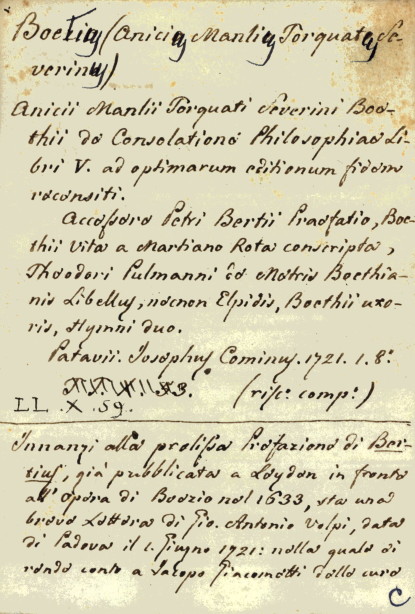 Boetius (Anicius Manlius Torquatus Se-
verinus)
Anicii Manlii Torquati Severini Boe-
thii de Consolatione Philosophiae Li-
bri V. ad optimarum editionum fidem
recensiti.
Accessere Petri Bertii Praefatio, Boe-
thii vita a Martiano Rota conscripta,
Theodori Pulmanni de Metris Boethia-
nis Libellus, necnon Elpidis, Boethii uxo-
ris, Hymni duo.
Patavii. Josephus Cominus. 1721. 1. 8.º
(risc.º comp.º)
LL. X. 59.
Innanzi alla prolissa Prefazione di Ber-
tius, già pubblicata a Leyden in fronte
all'opera di Boezio nel 1633, sta una
breve Lettera di Gio. Antonio Volpi, data
di Padova il 1. Giugno 1721: nella quale si
rende conto a Jacopo Giacometti delle cure
C